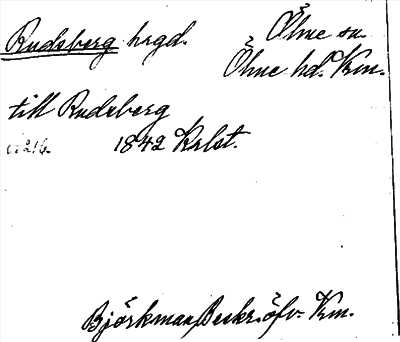 Rudsberg hrgd. Ölme sn.
Ölme hd. Krm.
till Rudsberg
s. 216. 1842 Krlst.
Björkman, Beskr. öfv. Krm.